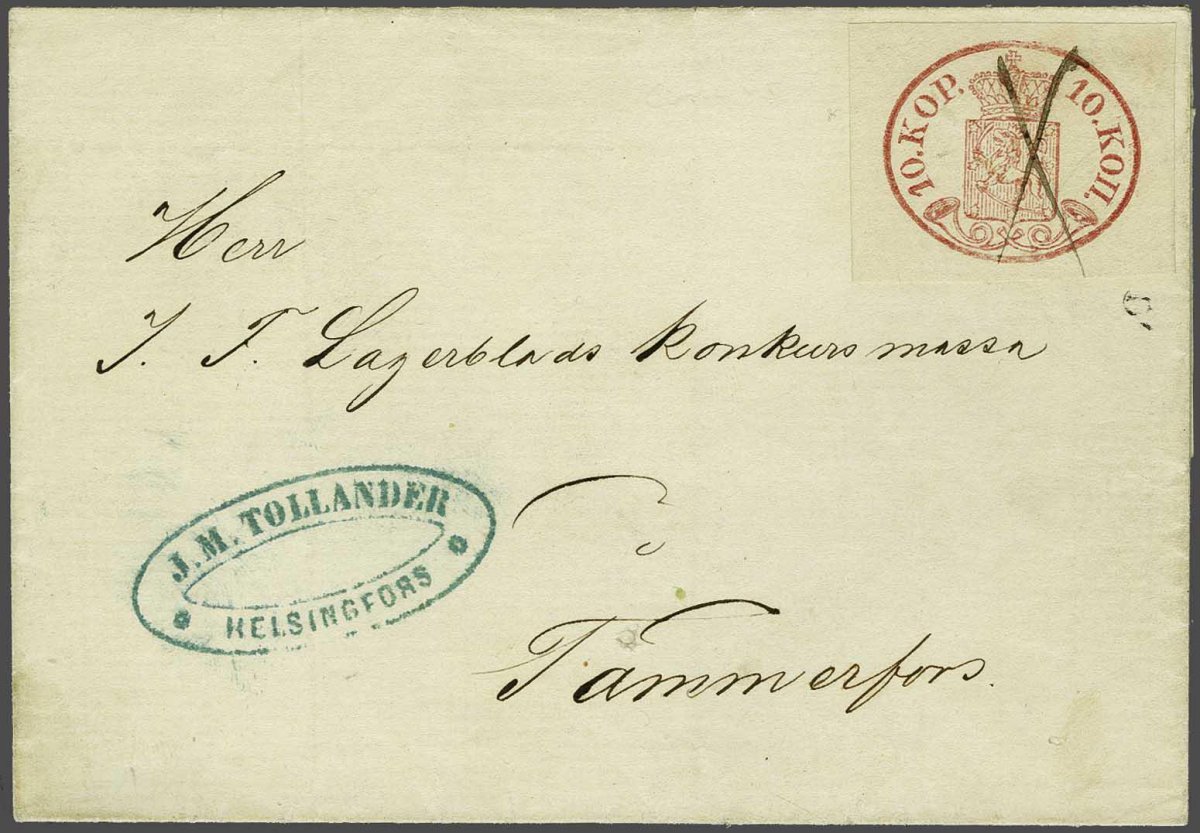 10. KOP. 10. КОП.
Herr
J. F. Lagerblads Konkursmassa
J. M. TOLLANDER
HELSINGFORS
Tammerfors.